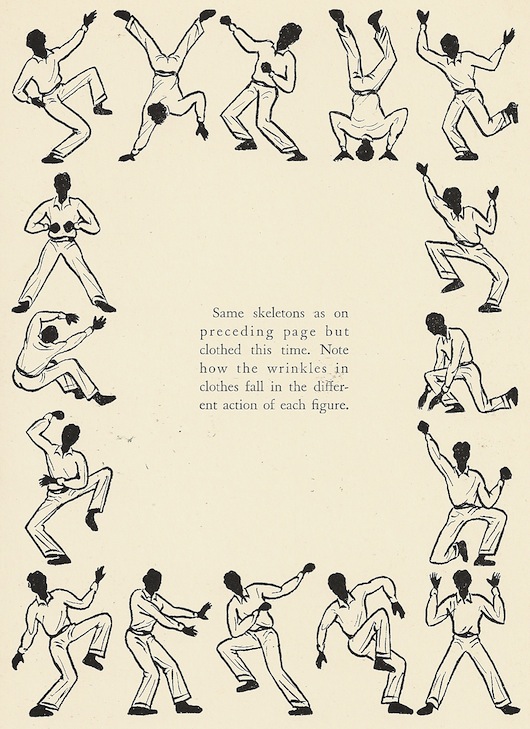 Same skeletons as on
preceding page but
clothed this time. Note
how the wrinkles in
clothes fall in the differ-
ent action of each figure.